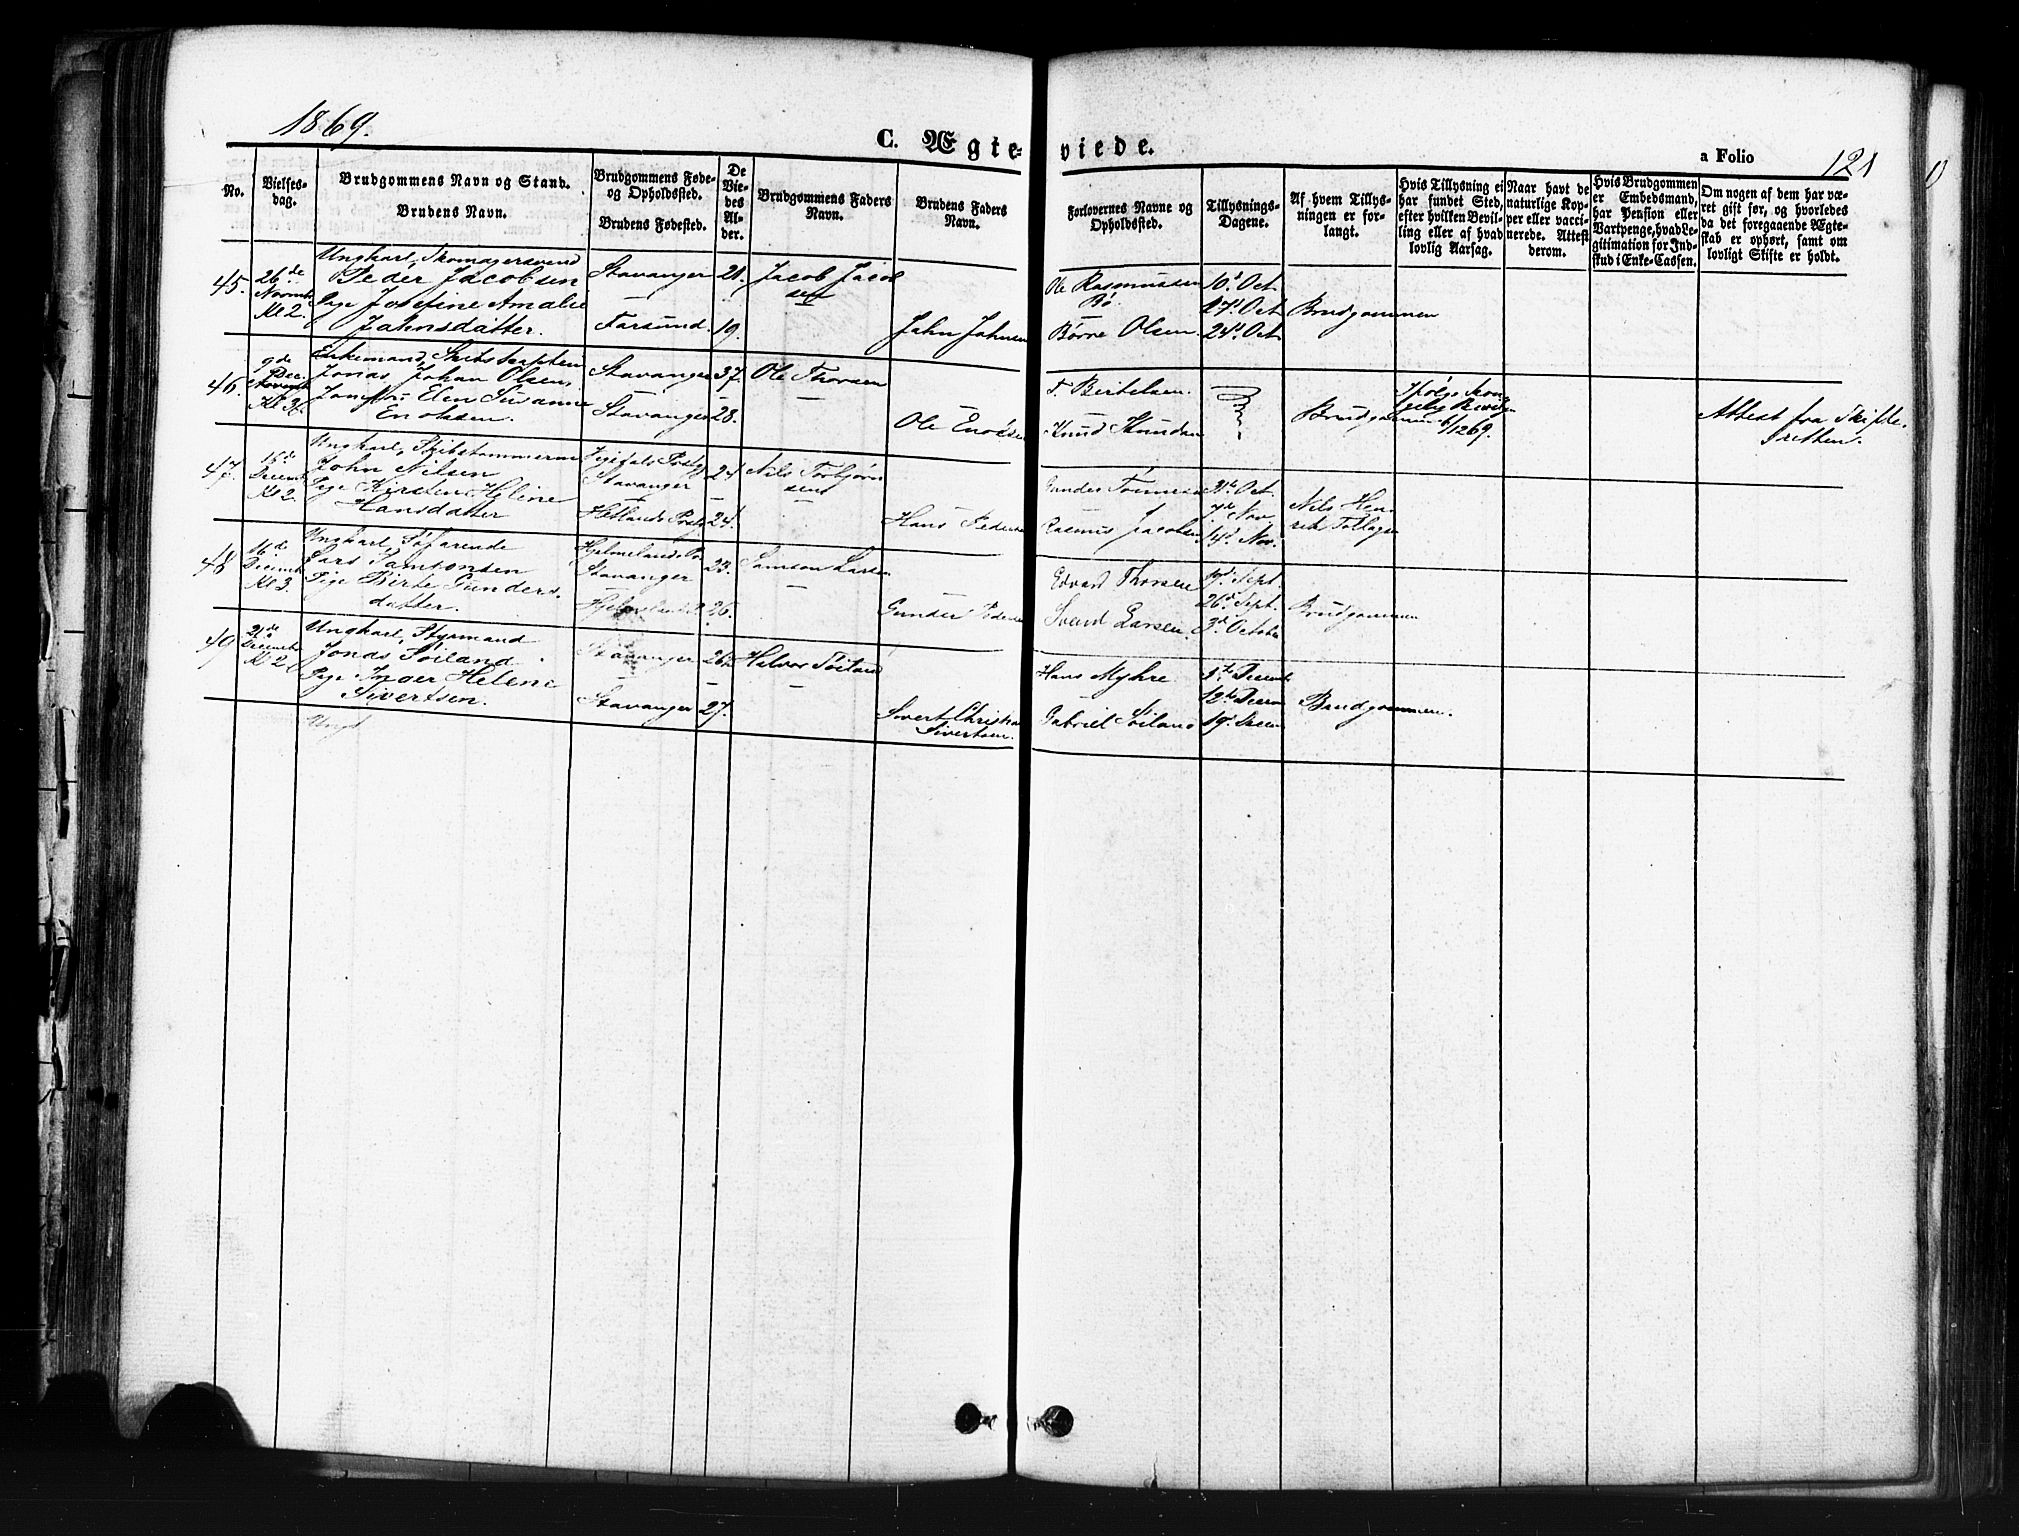 1869.
C. Ægte- viede.
a Folio 121
No.
Vielses-
dag.
Brudgommens Navn og Stand.
Brudens Navn.
Brudgommens Føde-
og Opholdssted.
Brudens Fødested.
De
Vie-
des
Al-
der.
Brudgommens Faders
Navn.
Brudens Faders
Navn.
Forlovernes Navne og
Opholdssted.
Tillysnings-
Dagene.
Af hvem Tillys-
ningen er for-
langt.
Hvis Tillysning ei
har fundet Sted,
efter hvilken Bevil-
ling eller af hvad
lovlig Aarsag.
Naar havt de
naturlige Kop-
per eller vacci-
nerede. Attest
derom.
Hvis Brudgommen
er Embedsmand,
har Pension eller
Vartpenge, hvad Le-
gitimation for Ind-
skud i Enke-Cassen.
Om nogen af dem har væ-
ret gift før, og hvorledes
da det foregaaende Ægte-
skab er ophørt, samt om
lovligt Skifte er holdt.
45.
26de
Novmbr
Kl 2.
Ungkarl, Skomagersvend
Peder Jacobsen
Pige Josefine Amalie
Jahnsdatter.
Stavanger
Farsund.
21.
19.
Jacob Jacob
sen
Jahn Jahnsen
Ole Rasmussen
Bø.
Børre Olsen
10' Oct
17' Oct
24' Oct
Brudgommen
46.
9de
Dec.
Kl 3.
Enkemand, Skibskapten
Jonas Johan Olsen,
Jomfru Elen Susanne
Enoksen.
Stavanger
Stavanger
37.
28.
Ole Thorsen
Ole Enoksen
T. Bertelsen.
Knud Knudsen
Brudgommen
Ifølge Kon
gelig Bevilgn
6/12 69.
Attest fra Skifte-
retten.
47.
15de
Decemb
Kl 2.
Ungkarl, Skibstømmerm
John Nilsen
Pige Kirsten Helene
Hansdatter
Stavanger
Hetlands Præstg
24
24.
Nils Torbjørn
sen
Hans Pedersen
Gunder Tønnesen
Rasmus Jacobsen
31te Oct.
7de Nov
14d. Nov.
Nils Hen
rik Tollagsen
48
16de
Decemb
Kl 3.
Ungkarl, Søfarende
Lars Samsonsen
Pige Birte Gunders
datter.
Hjelmelands Pr
Stavanger
Hjelmelands P
23.
26.
Samson Larsen
Gunder Pedersen
Edvard Thorsen
Svend Larsen.
19d Sept.
26d. Sept.
3d. October
Brudgommen
49
21de
Decemb
Kl 2.
Ungkarl, Styrmand
Jonas Søiland
Pige Inger Helene
Sivertsen.
Stavanger
Stavanger
26.
27.
Halvor Søiland
Sivert Christian
Sivertsen.
Hans Myhre
Gabriel Søiland
5te Decemb
12te Decem
19d. Decem
Brudgommen.
Ungk